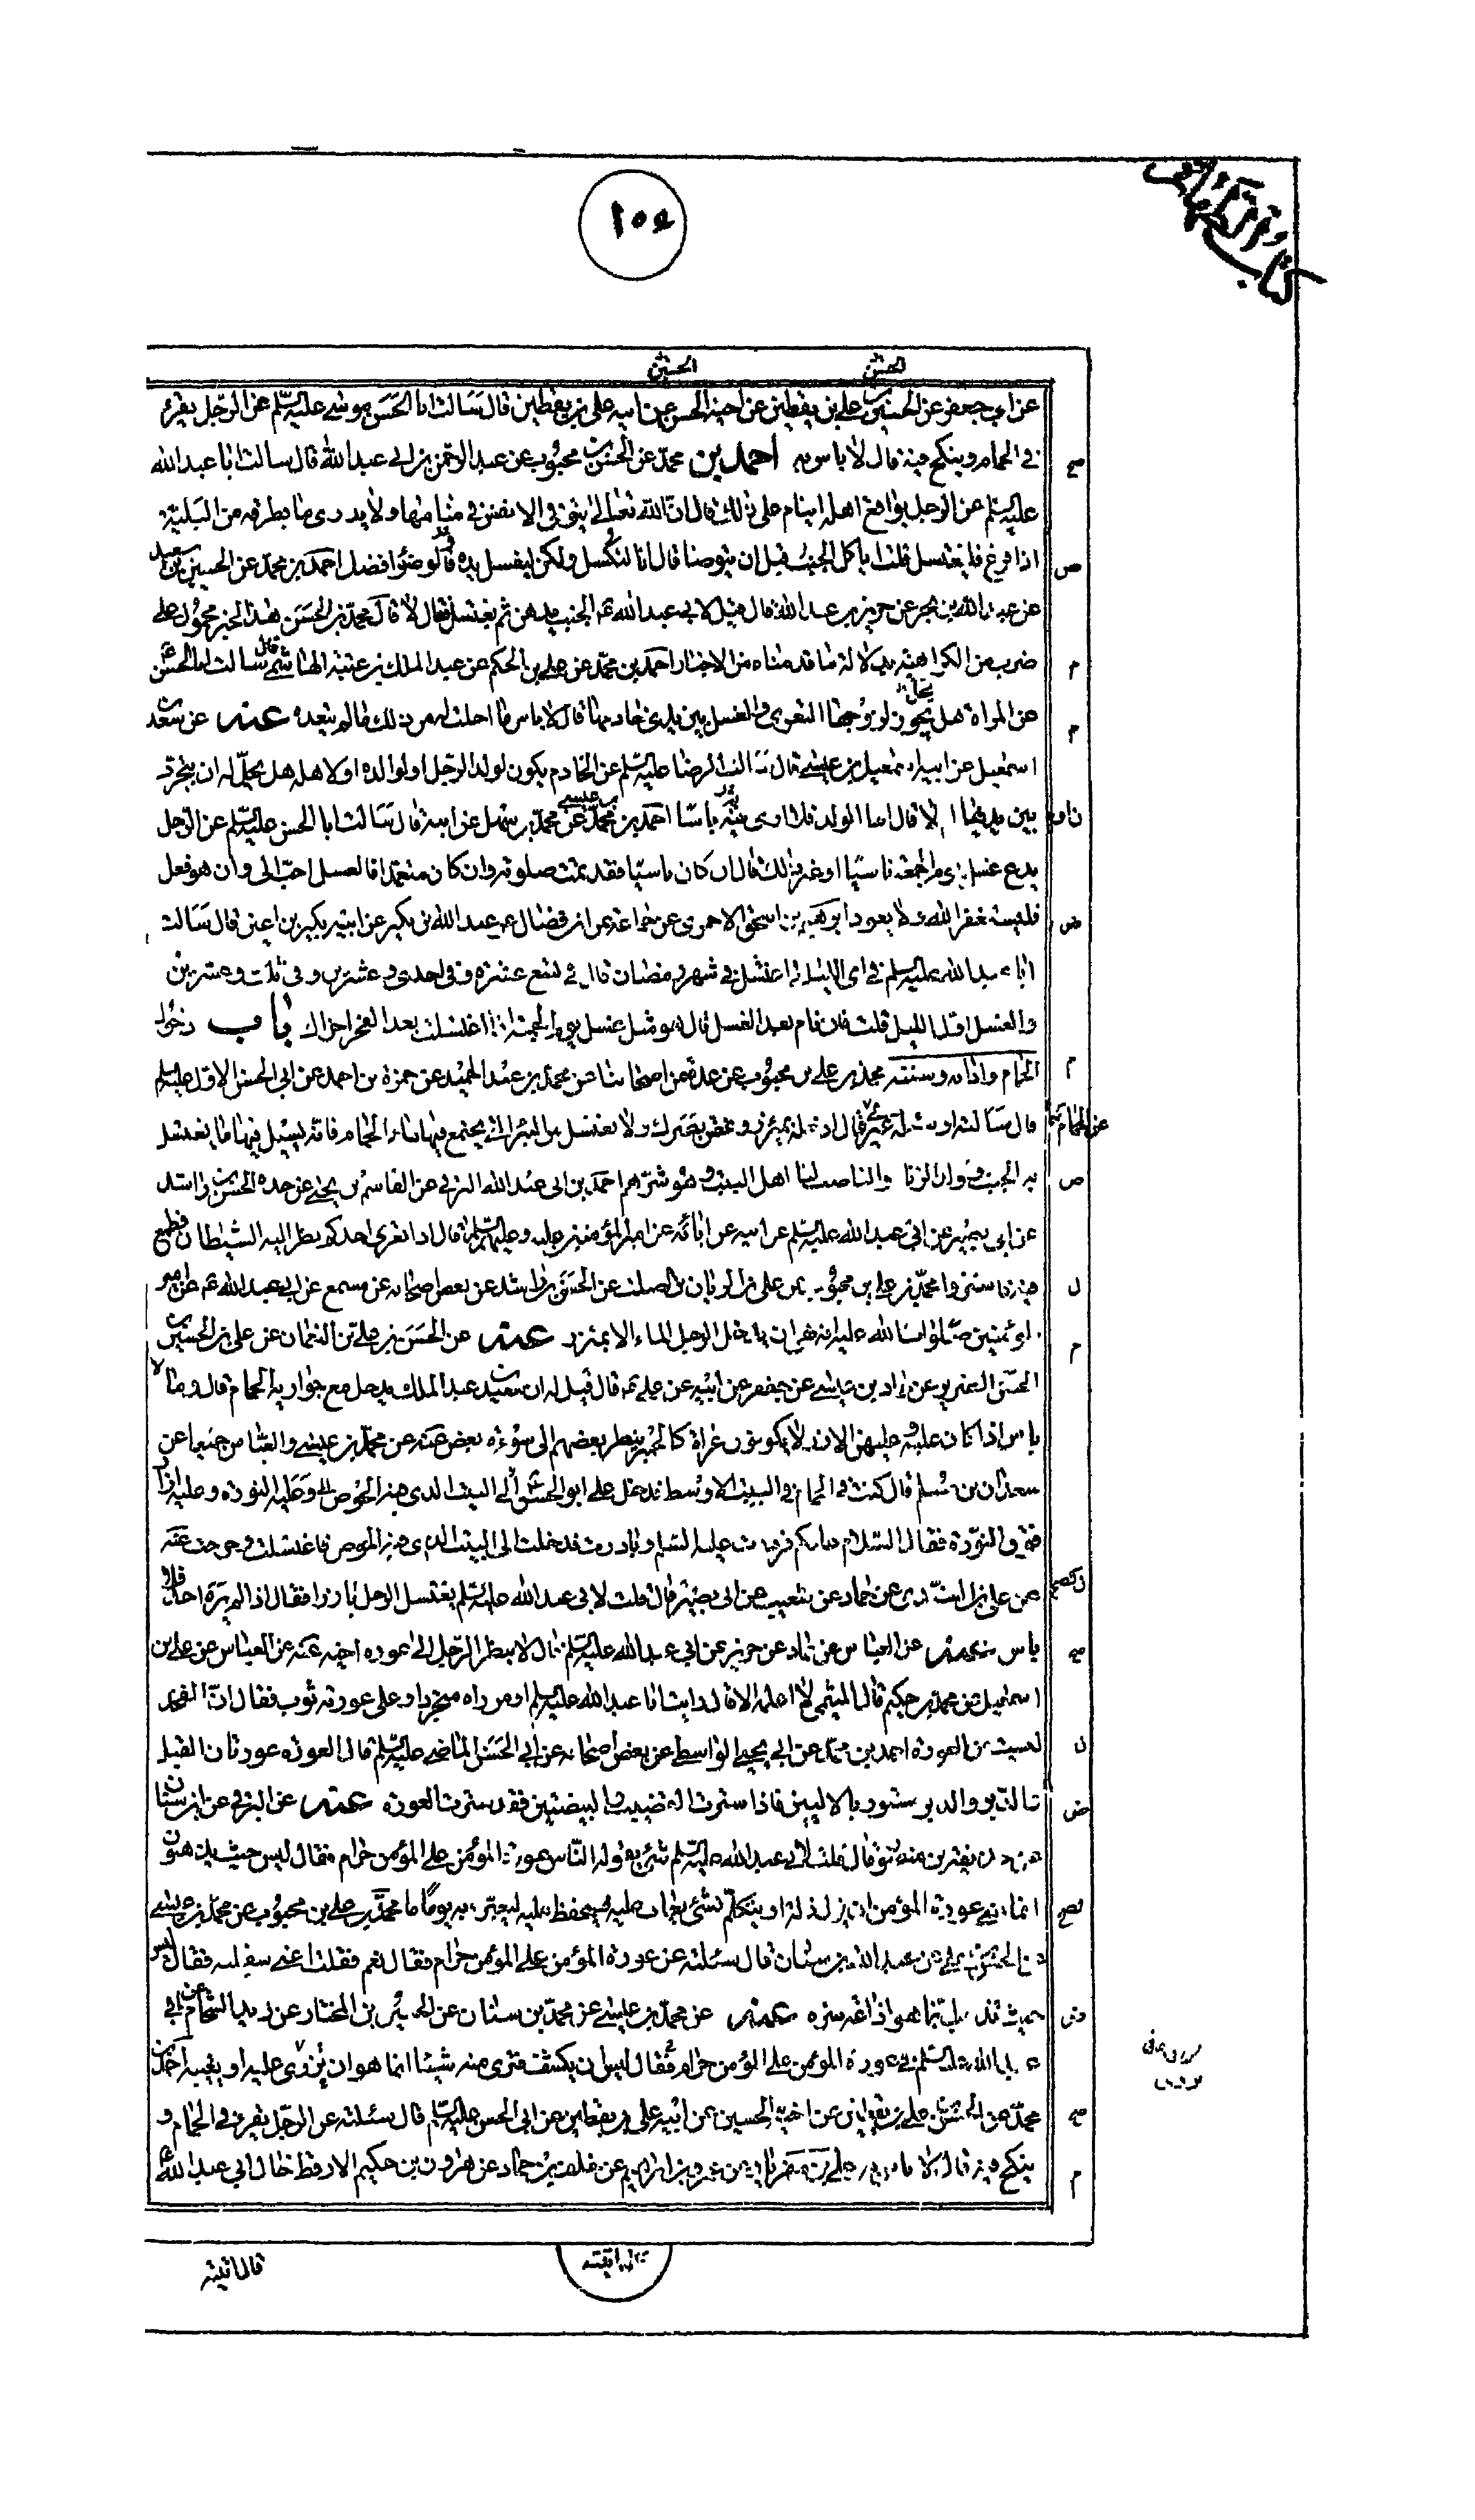 ١٠٤
الحسن الحسين
عن ابي جعفر عن الحسين بن علي بن يقطين عن اخيه الحسن عن ابيه علي بن يقطين قال سالت ابا الحسن موسى عليه السلم عن الرجل يقرء
في الحمام وينكح فيه قال لا باس به احمد بن محمد عن الحسن بن محبوب عن عبد الرحمن بن ابي عبد الله قال سالت ابا عبد الله
عليه السلم عن الرجل يواقع اهله اينام على ذلك قال ان الله تعالى يتوفى الانفس في منامها ولا يدرى ما يطرقه من البلية
اذا فرغ فليغتسل قلت ياكل الجنب قبل ان يتوضا قال انا لنكسل ولكن ليغسل يده والوضوء افضل احمد بن محمد عن الحسين بن سعيد
عن عبد الله بن بحر عن حريز قال قيل لابي عبد الله ع الجنب يدهن ثم يغتسل قال لا قال محمد بن الحسن هذا الخبر محمول على
ضرب من الكراهية بدلالة ما قدمناه من الاخبار احمد بن محمد عن علي بن الحكم عن عبد الملك بن عتبة الهاشمي قال سالت ابا الحسن
عن المراة هل يحل لزوجها التعرى والغسل بين يدى خادمها قال لا باس ما احلت له من ذلك ما لم يتعده عنه عن سعد بن
اسمعيل عن ابيه اسمعيل بن عيسى قال سالت الرضا عليه السلم عن الخادم يكون لولد الرجل او لوالده او لاهله هل يحل له ان يتجرد
بين يديها ام لا قال اما الولد فلا ارى به باسا احمد بن محمد بن عيسى عن محمد بن سهل عن ابيه قال سالت ابا الحسن عليه السلم عن الرجل
يدع غسل يوم الجمعة ناسيا او غير ذلك قال ان كان ناسيا فقد تمت صلوته وان كان متعمدا فالغسل احب الى وان هو فعل
فليستغفر الله ولا يعود ابرهيم بن اسحق الاحمرى عن جماعة عن ابن فضال عن عبد الله بن بكير عن ابيه بكير بن اعين قال سالت
ابا عبد الله عليه السلم في اى الليالى اغتسل في شهر رمضان قال في تسع عشرة وفي احدى وعشرين وفي ثلث وعشرين
والغسل اول الليل قلت فان نام بعد الغسل قال هو مثل غسل يوم الجمعة اذا اغتسلت بعد الفجر اجزاك باب دخول
الحمام وادابه وسننه محمد بن علي بن محبوب عن عدة من اصحابنا عن محمد بن عبد الحميد عن حمزة بن احمد عن ابي الحسن الاول عليه السلم
قال سالته او سئله غيرى عن الحمام قال ادخله بمئزر وغض بصرك ولا تغتسل من البئر التي يجتمع فيها ماء الحمام فانه يسيل فيها ما يغتسل
به الجنب وولد الزنا والناصب لنا اهل البيت وهو شرهم احمد بن ابي عبد الله البرقي عن القاسم بن يحيى عن جده الحسن بن راشد
عن ابي بصير عن ابي عبد الله عليه السلم عن ابيه عن ابائه عن امير المؤمنين عليه وعليهم السلم قال اذا تعرى احدكم نظر اليه الشيطان فطمع
فيه فاستتروا محمد بن علي بن محبوب عن علي بن الريان بن الصلت عن الحسن بن راشد عن بعض اصحابه عن مسمع عن ابي عبد الله ع عن امير
المؤمنين صلوات الله عليه انه نهى ان يدخل الرجل الماء الا بمئزر عنه عن الحسن بن علي بن النعمان عن علي بن الحسين بن
الحسن الضرير عن حماد بن عيسى عن جعفر عن ابيه عن علي ع قال قيل له ان سعيد بن عبد الملك يدخل مع جواريه الحمام قال وما لا
باس اذا كان عليه وعليهن الازر لا يكونون عراة كالحمر ينظر بعضهم الى سوءة بعض عنه عن محمد بن عيسى والعباس جميعا عن
سعدان بن مسلم قال كنت في الحمام في البيت الاوسط فدخل علي ابو الحسن ع الى البيت الذى فيه الحوض وعليه النورة وعليه ازار
فوق النورة فقال السلام عليكم فرددت عليه السلم وبادرت فدخلت الى البيت الذى فيه الحوض فاغتسلت وخرجت عنه
عن علي بن السندى عن حماد عن شعيب عن ابي بصير قال قلت لابي عبد الله عليه السلم يغتسل الرجل بارزا فقال اذا لم يره احد فلا
باس عنه عن العباس عن حماد عن حريز عن ابي عبد الله عليه السلم قال لا ينظر الرجل الى عورة اخيه عنه عن العباس عن علي بن
اسمعيل عن محمد بن حكيم قال الميثمى لا اعلمه الا قال رايت ابا عبد الله عليه السلم او من راه متجردا وعلى عورته ثوب فقال ان الفخذ
ليست من العورة احمد بن محمد عن ابي يحيى الواسطي عن بعض اصحابه عن ابي الحسن الماضي عليه السلم قال العورة عورتان القبل
والدبر والدبر مستور بالاليين فاذا سترت القضيب والبيضتين فقد سترت العورة عنه عن البرقي عن ابن سنان
عن حذيفة بن منصور قال قلت لابي عبد الله عليه السلم شىء يقوله الناس عورة المؤمن على المؤمن حرام فقال ليس حيث يذهبون
انما عنى عورة المؤمن ان يزل زلة او يتكلم بشىء يعاب عليه فيحفظ عليه ليعيره به يوما ما محمد بن علي بن محبوب عن محمد بن عيسى
عن الحسن بن علي عن عبد الله بن سنان قال سئلته عن عورة المؤمن على المؤمن حرام فقال نعم فقلت اعنى سفليه فقال ليس
حيث تذهب انما هو اذاعة سره عنه عن محمد بن عيسى عن محمد بن سنان عن الحسين بن المختار عن زيد الشحام عن ابي
عبد الله عليه السلم في عورة المؤمن على المؤمن حرام فقال ليس ان يكشف فترى منه شيئا انما هو ان تزرى عليه او تعيبه احمد بن
محمد عن الحسن بن علي بن يقطين عن اخيه الحسين عن ابيه علي بن يقطين عن ابي الحسن عليه السلم قال سئلته عن الرجل يقرء في الحمام و
ينكح فيه قال لا باس به علي بن مهزيار عن عمرو بن ابراهيم عن خلف بن حماد عن هرون بن حكيم الارقط خال ابي عبد الله
قال اتيته